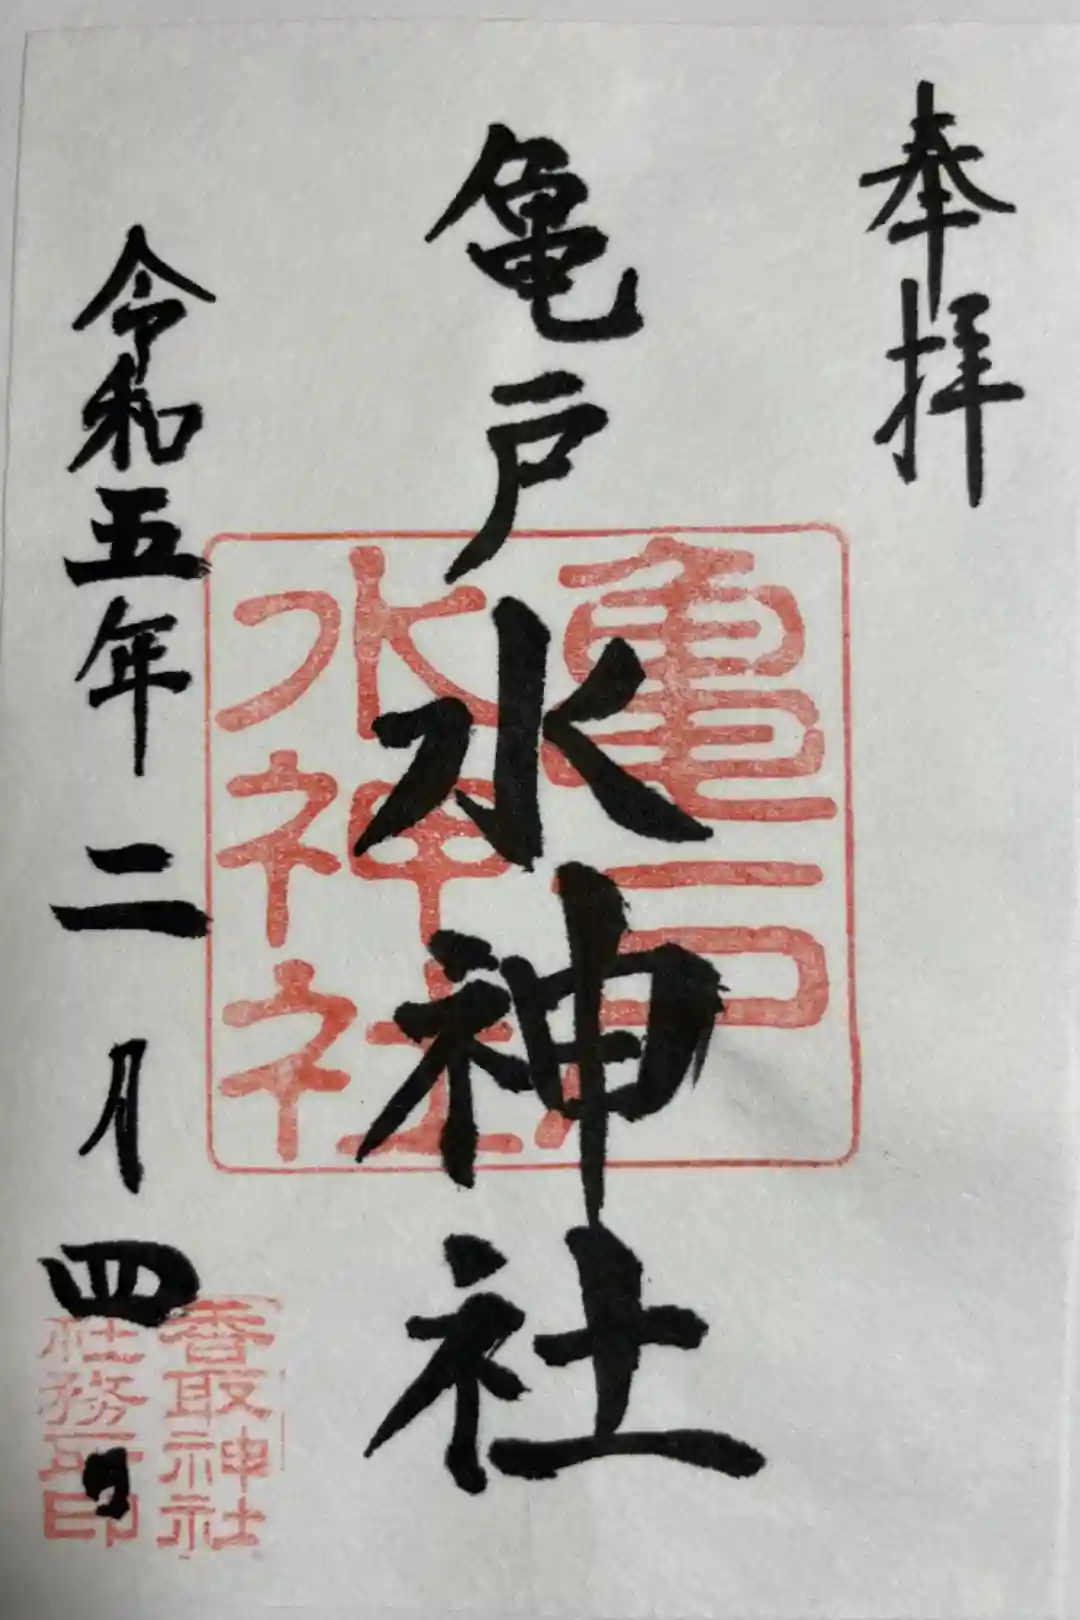 奉拝
亀戸水神社
令和五年二月四日
亀戸
水神社
香取神社
社務所印